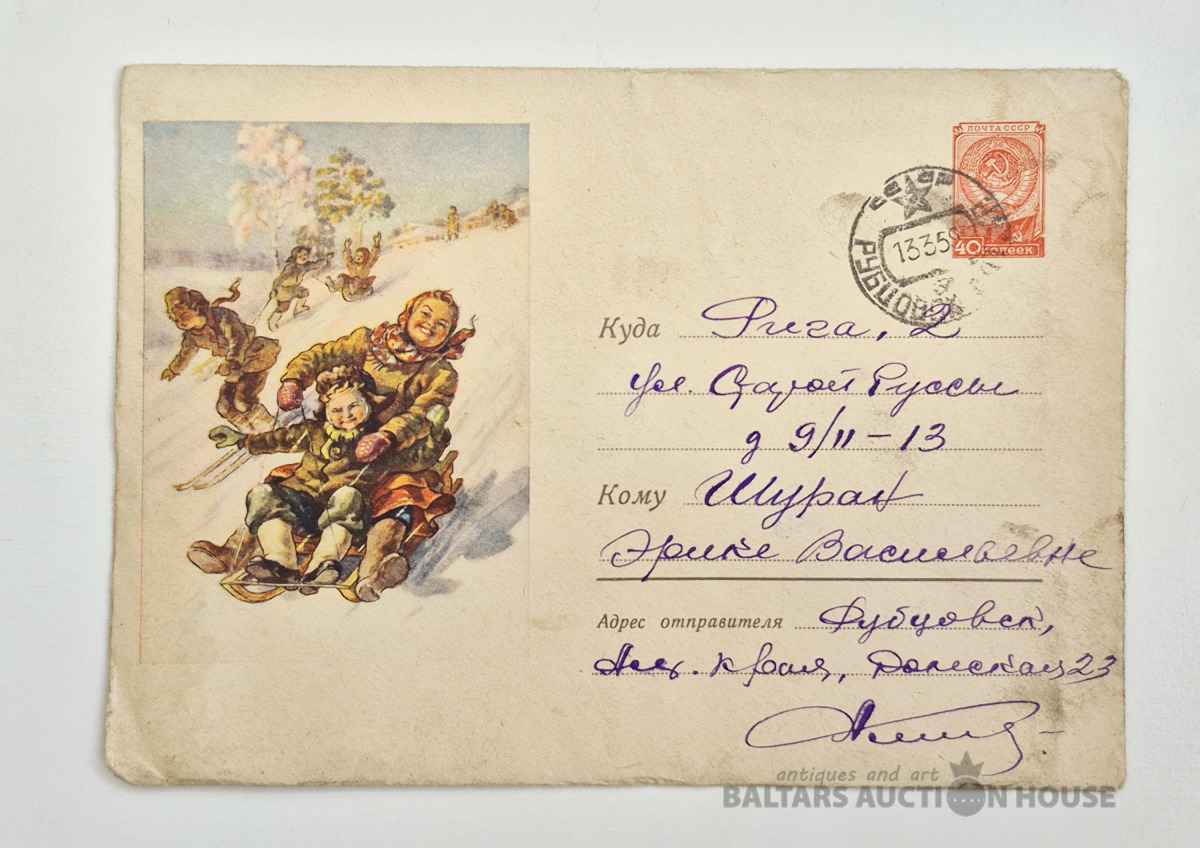 ПОЧТА СССР
40 копеек
РУБЦОВСК
13359
Куда Рига, 2
ул. Старой Руссы
д 9/11-13
Кому Шуран
Эрике Васильевне
Адрес отправителя Рубцовск,
Алт. края, 23
antiques and art
BALTARS AUCTION HOUSE